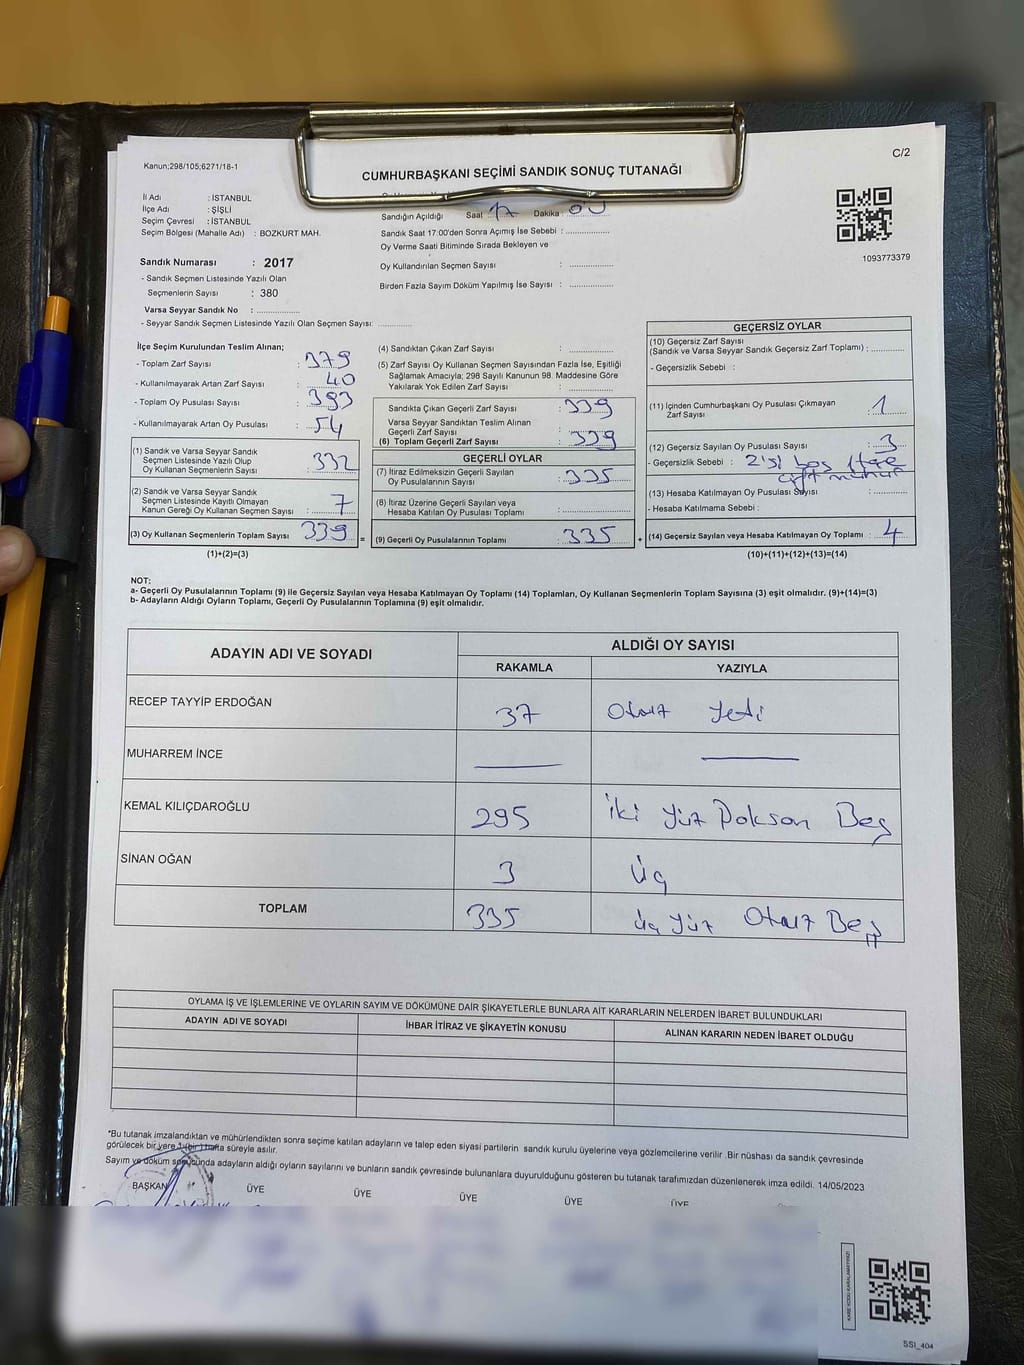 Kanun;298/105;6271/18-1
C/2
CUMHURBAŞKANI SEÇİMİ SANDIK SONUÇ TUTANAĞI
İl Adı : İSTANBUL
İlçe Adı : ŞİŞLİ
Seçim Çevresi : İSTANBUL
Seçim Bölgesi (Mahalle Adı) : BOZKURT MAH.
Sandığın Açıldığı Saat 17 Dakika : 00
Sandık Saat 17:00'den Sonra Açımış İse Sebebi : ................
Oy Verme Saati Bitiminde Sırada Bekleyen ve
Oy Kullandırılan Seçmen Sayısı : ................
Birden Fazla Sayım Döküm Yapılmış İse Sayısı : ................
1093773379
Sandık Numarası : 2017
- Sandık Seçmen Listesinde Yazılı Olan
Seçmenlerin Sayısı : 380
Varsa Seyyar Sandık No : ................
- Seyyar Sandık Seçmen Listesinde Yazılı Olan Seçmen Sayısı: ............
İlçe Seçim Kurulundan Teslim Alınan;
- Toplam Zarf Sayısı : 379
- Kullanılmayarak Artan Zarf Sayısı : 40
- Toplam Oy Pusulası Sayısı : 393
- Kullanılmayarak Artan Oy Pusulası : 54
(1) Sandık ve Varsa Seyyar Sandık
Seçmen Listesinde Yazılı Olup
Oy Kullanan Seçmenlerin Sayısı : 332
(2) Sandık ve Varsa Seyyar Sandık
Seçmen Listesinde Kayıtlı Olmayan
Kanun Gereği Oy Kullanan Seçmen Sayısı : 7
(3) Oy Kullanan Seçmenlerin Toplam Sayısı : 339 =
(1)+(2)=(3)
(4) Sandıktan Çıkan Zarf Sayısı : ............
(5) Zarf Sayısı Oy Kullanan Seçmen Sayısından Fazla İse, Eşitliği
Sağlamak Amacıyla; 298 Sayılı Kanunun 98. Maddesine Göre
Yakılarak Yok Edilen Zarf Sayısı : ............
Sandıkta Çıkan Geçerli Zarf Sayısı : 339
Varsa Seyyar Sandıktan Teslim Alınan
Geçerli Zarf Sayısı :
(6) Toplam Geçerli Zarf Sayısı : 339
GEÇERLİ OYLAR
(7) İtiraz Edilmeksizin Geçerli Sayılan
Oy Pusulalarının Sayısı : 335
(8) İtiraz Üzerine Geçerli Sayılan veya
Hesaba Katılan Oy Pusulası Toplamı : ............
(9) Geçerli Oy Pusulalarının Toplamı : 335 +
GEÇERSİZ OYLAR
(10) Geçersiz Zarf Sayısı
(Sandık ve Varsa Seyyar Sandık Geçersiz Zarf Toplamı) : ............
- Geçersizlik Sebebi :
(11) İçinden Cumhurbaşkanı Oy Pusulası Çıkmayan
Zarf Sayısı : 1
(12) Geçersiz Sayılan Oy Pusulası Sayısı : 3
- Geçersizlik Sebebi : 2'si boş 1 tane
çift mühür
(13) Hesaba Katılmayan Oy Pusulası Sayısı : ............
- Hesaba Katılmama Sebebi :
(14) Geçersiz Sayılan veya Hesaba Katılmayan Oy Toplamı : 4
(10)+(11)+(12)+(13)=(14)
NOT:
a- Geçerli Oy Pusulalarının Toplamı (9) ile Geçersiz Sayılan veya Hesaba Katılmayan Oy Toplamı (14) Toplamları, Oy Kullanan Seçmenlerin Toplam Sayısına (3) eşit olmalıdır. (9)+(14)=(3)
b- Adayların Aldığı Oyların Toplamı, Geçerli Oy Pusulalarının Toplamına (9) eşit olmalıdır.
ADAYIN ADI VE SOYADI
ALDIĞI OY SAYISI
RAKAMLA YAZIYLA
RECEP TAYYİP ERDOĞAN 37 Otuz Yedi
MUHARREM İNCE
KEMAL KILIÇDAROĞLU 295 İki Yüz Doksan Beş
SİNAN OĞAN 3 Üç
TOPLAM 335 Üç Yüz Otuz Beş
OYLAMA İŞ VE İŞLEMLERİNE VE OYLARIN SAYIM VE DÖKÜMÜNE DAİR ŞİKAYETLERLE BUNLARA AİT KARARLARIN NELERDEN İBARET BULUNDUKLARI
ADAYIN ADI VE SOYADI İHBAR İTİRAZ VE ŞİKAYETİN KONUSU ALINAN KARARIN NEDEN İBARET OLDUĞU
*Bu tutanak imzalandıktan ve mühürlendikten sonra seçime katılan adayların ve talep eden siyasi partilerin sandık kurulu üyelerine veya gözlemcilerine verilir. Bir nüshası da sandık çevresinde
görülecek bir yere 1 (bir) hafta süreyle asılır.
Sayım ve döküm sonucunda adayların aldığı oyların sayılarını ve bunların sandık çevresinde bulunanlara duyurulduğunu gösteren bu tutanak tarafımızdan düzenlenerek imza edildi. 14/05/2023
BAŞKAN ÜYE ÜYE ÜYE ÜYE ÜYE
KARE KODU KARALAMAYINIZ!
SSI_404